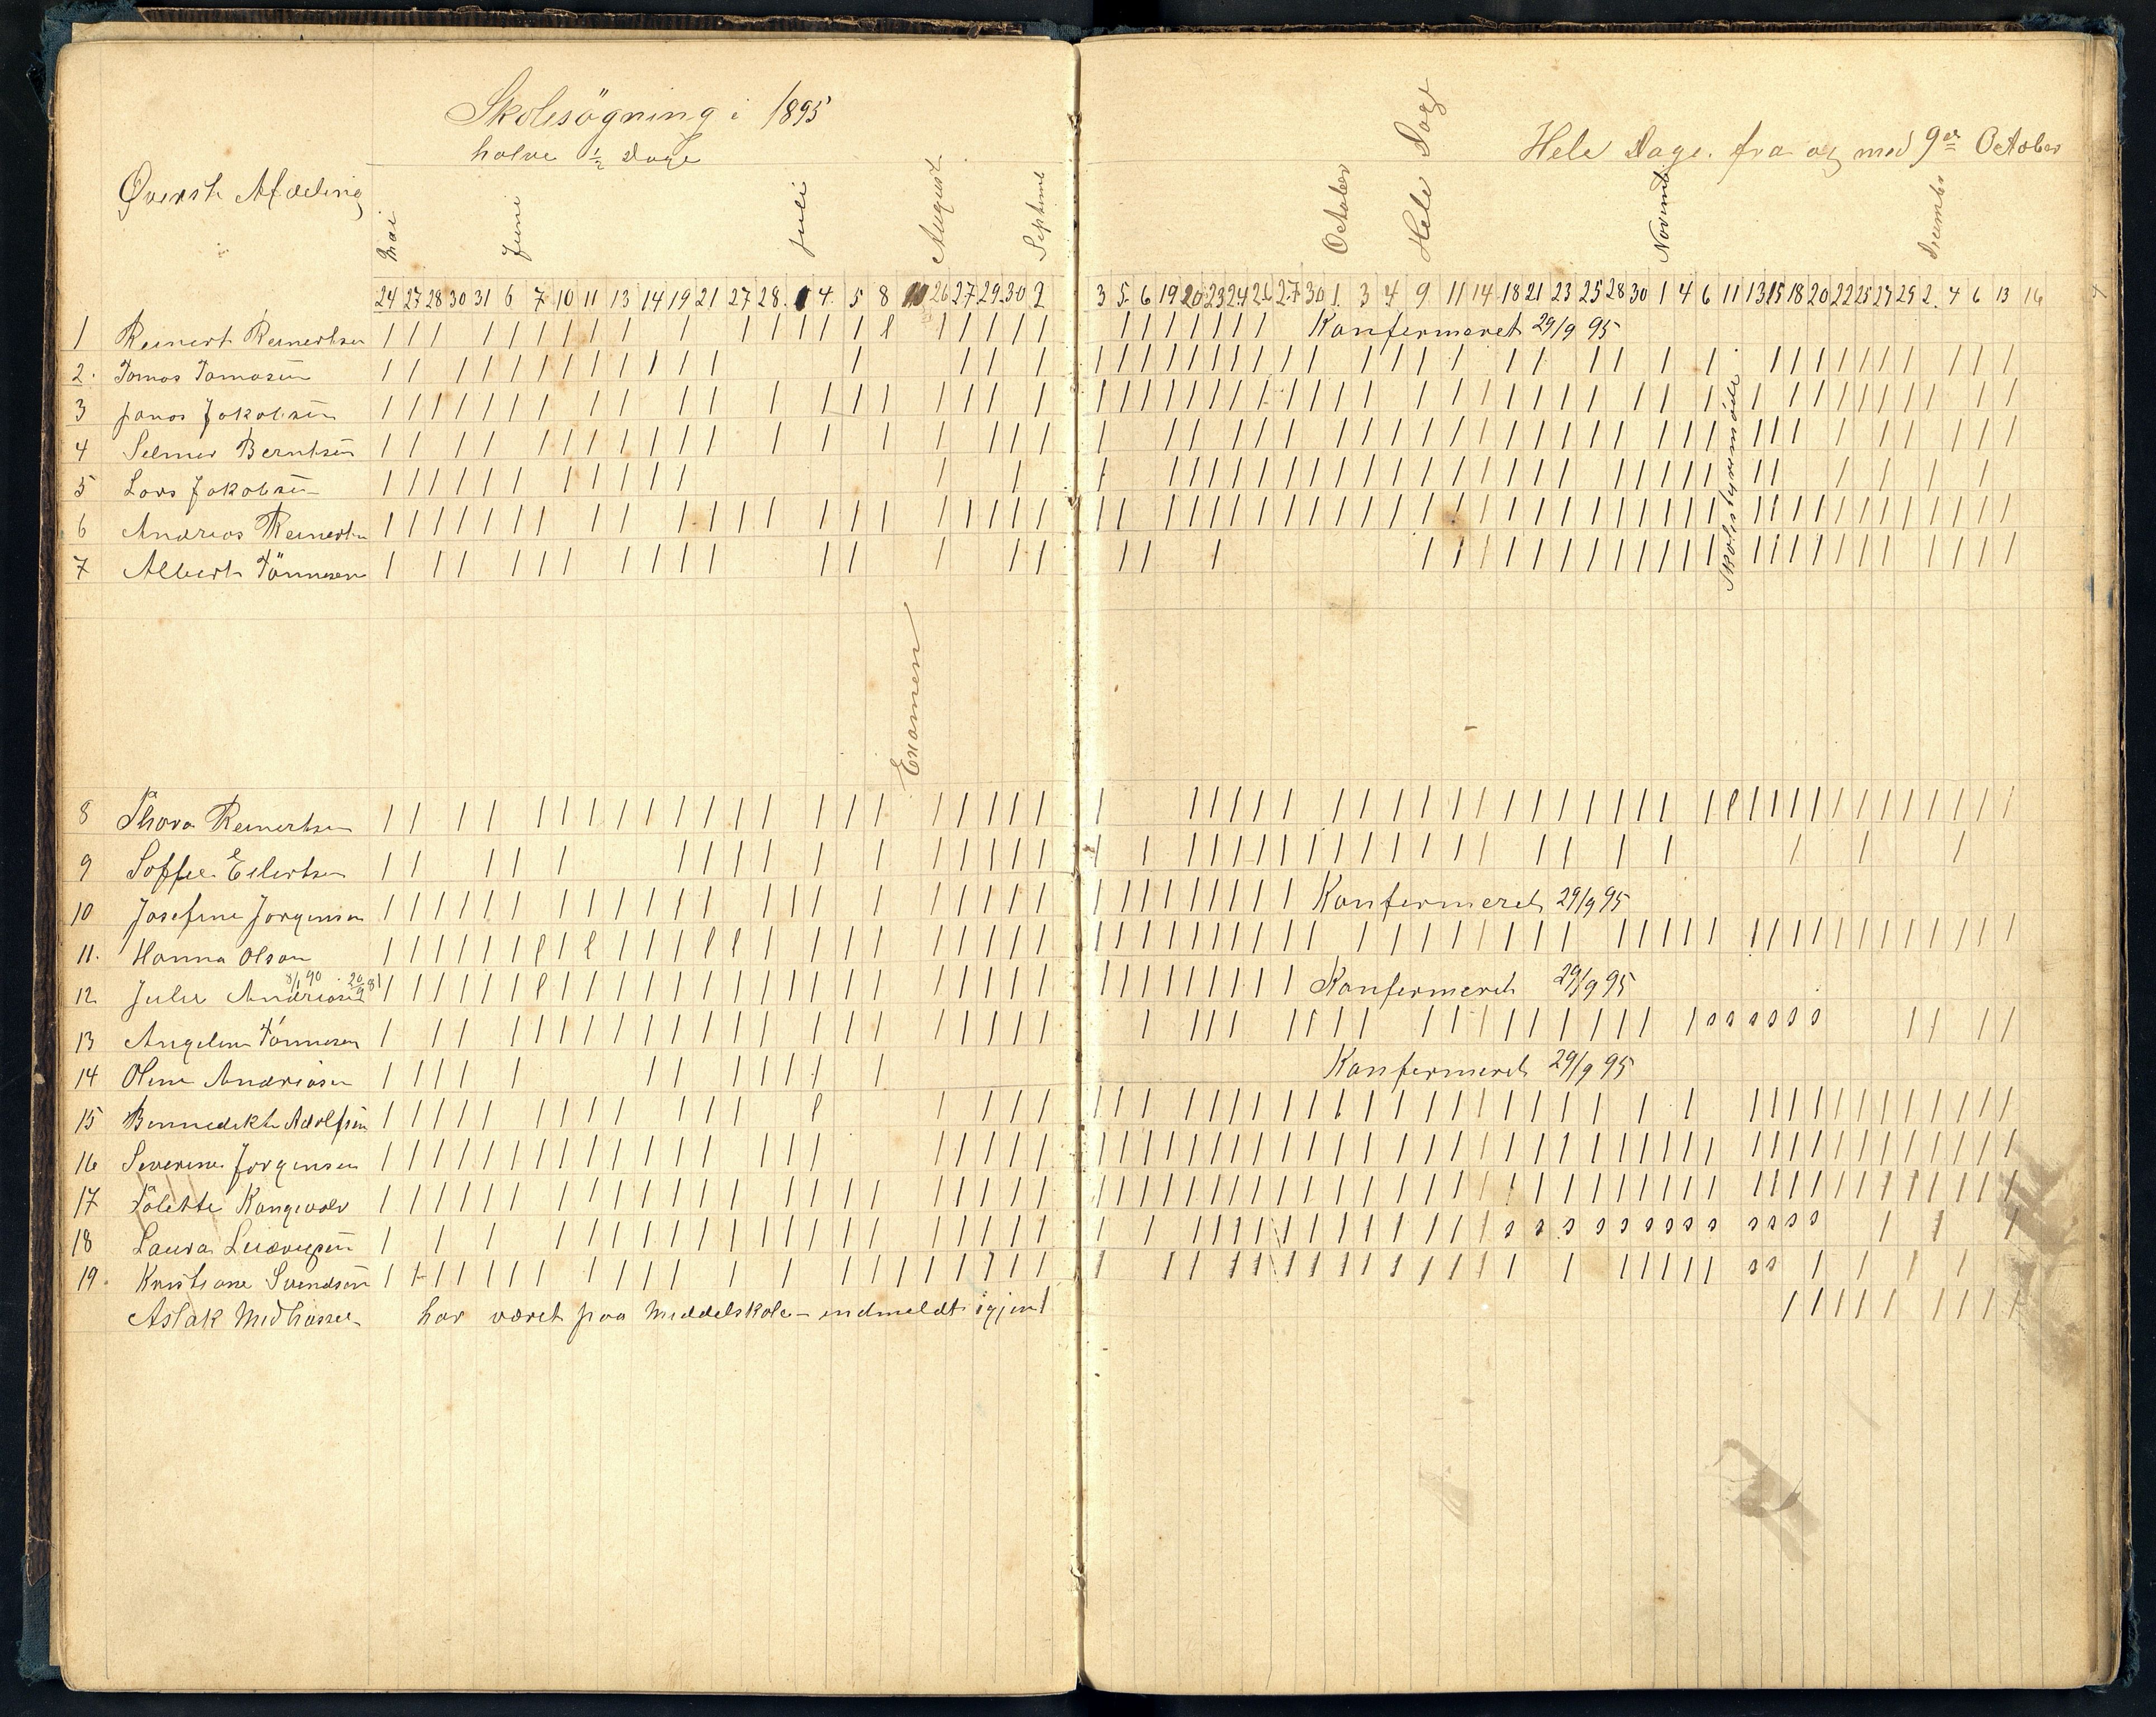 Skolesögning i 1895
halve 1/2 Dage
Øverste Afdeling
Mai
Juni
Juli
August
Septemb
24 27 28 30 31 6 7 10 11 13 14 19 21 27 28 1 4 5 8 10 26 27 29 30 2
1 Reinert Reinertsen
2. Tomas Tomasen
3 Jonas Jakobsen
4 Selmer Berntsen
5 Lars Jakobsen
6 Andreas Reinertsen
7 Albert Tönnesen
Examen
8 Thora Reinertsen
9 Soffie Eilertsen
10 Josefine Jorgensen
11. Hanna Olsen
12 Julie Andreasen
13 Angeline Tönnesen
14 Oline Andreasen
15 Bennedikte Adolfsen
16 Severine Jorgensen
17 Tolette Kongevold
18 Laura
19. Kristiane Svendsen
Aslak Midhassel har været paa Middelskole - indmeldt igjen
Hele Dage. fra og med 9de October
October
Hele Dage
Novemb
December
3 5 6 19 20 23 24 26 27 30 1 3 4 9 11 14 18 21 23 25 28 30 1 4 6 11 13 15 18 20 22 25 27 29 2 4 6 13 16
Konfermeret 29/9 95
Skolestyremöde
Konfermeret 29/9 95
Konfermeret 29/9 95
Konfermeret 29/9 95